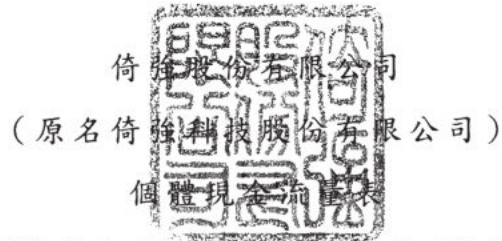 倚強股份有限公司
（原名倚強科技股份有限公司）
個體現金流量表